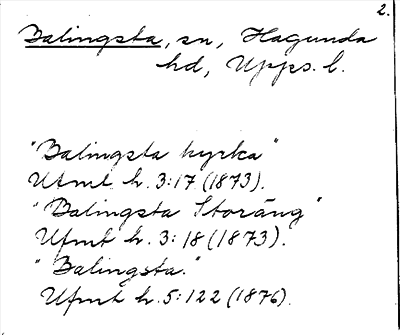 2.
Balingsta, sn, Hagunda
hd, Upps. l.
"Balingsta kyrka"
Ufmt h. 3:17 (1873).
"Balingsta Storäng"
Ufmt h. 3:18 (1873).
"Balingsta."
Ufmt h. 5:122 (1876).